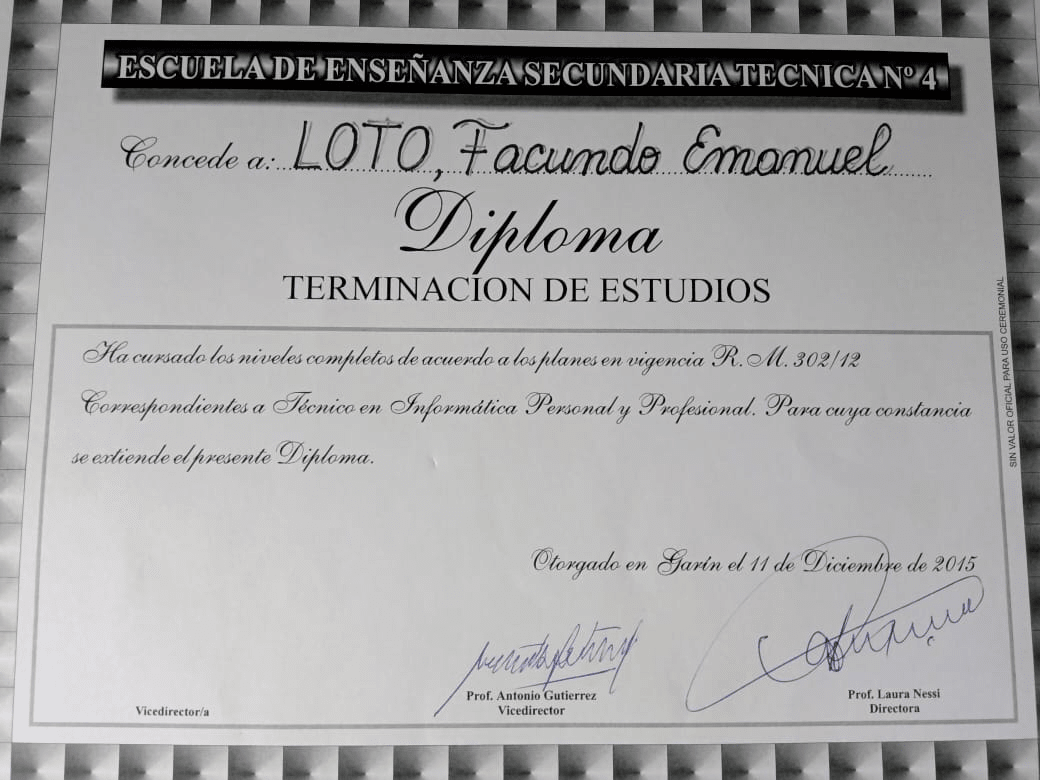 ESCUELA DE ENSEÑANZA SECUNDARIA TECNICA Nº 4
Concede a: LOTO, Facundo Emanuel
Diploma
TERMINACION DE ESTUDIOS
Ha cursado los niveles completos de acuerdo a los planes en vigencia R. M. 302/12
Correspondientes a Técnico en Informática Personal y Profesional. Para cuya constancia
se extiende el presente Diploma.
Otorgado en Garín el 11 de Diciembre de 2015
Prof. Antonio Gutierrez
Vicedirector
Prof. Laura Nessi
Directora
Vicedirector/a
SIN VALOR OFICIAL PARA USO CEREMONIAL